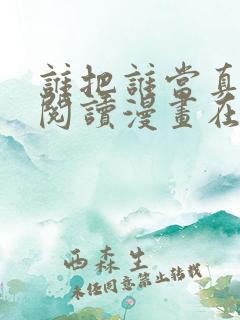 誰把誰當真
閱讀漫畫在
西森生
未經同意禁止轉載